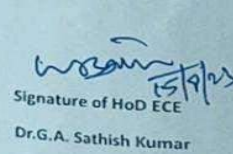 15/9/23
Signature of HoD ECE
Dr.G.A. Sathish Kumar